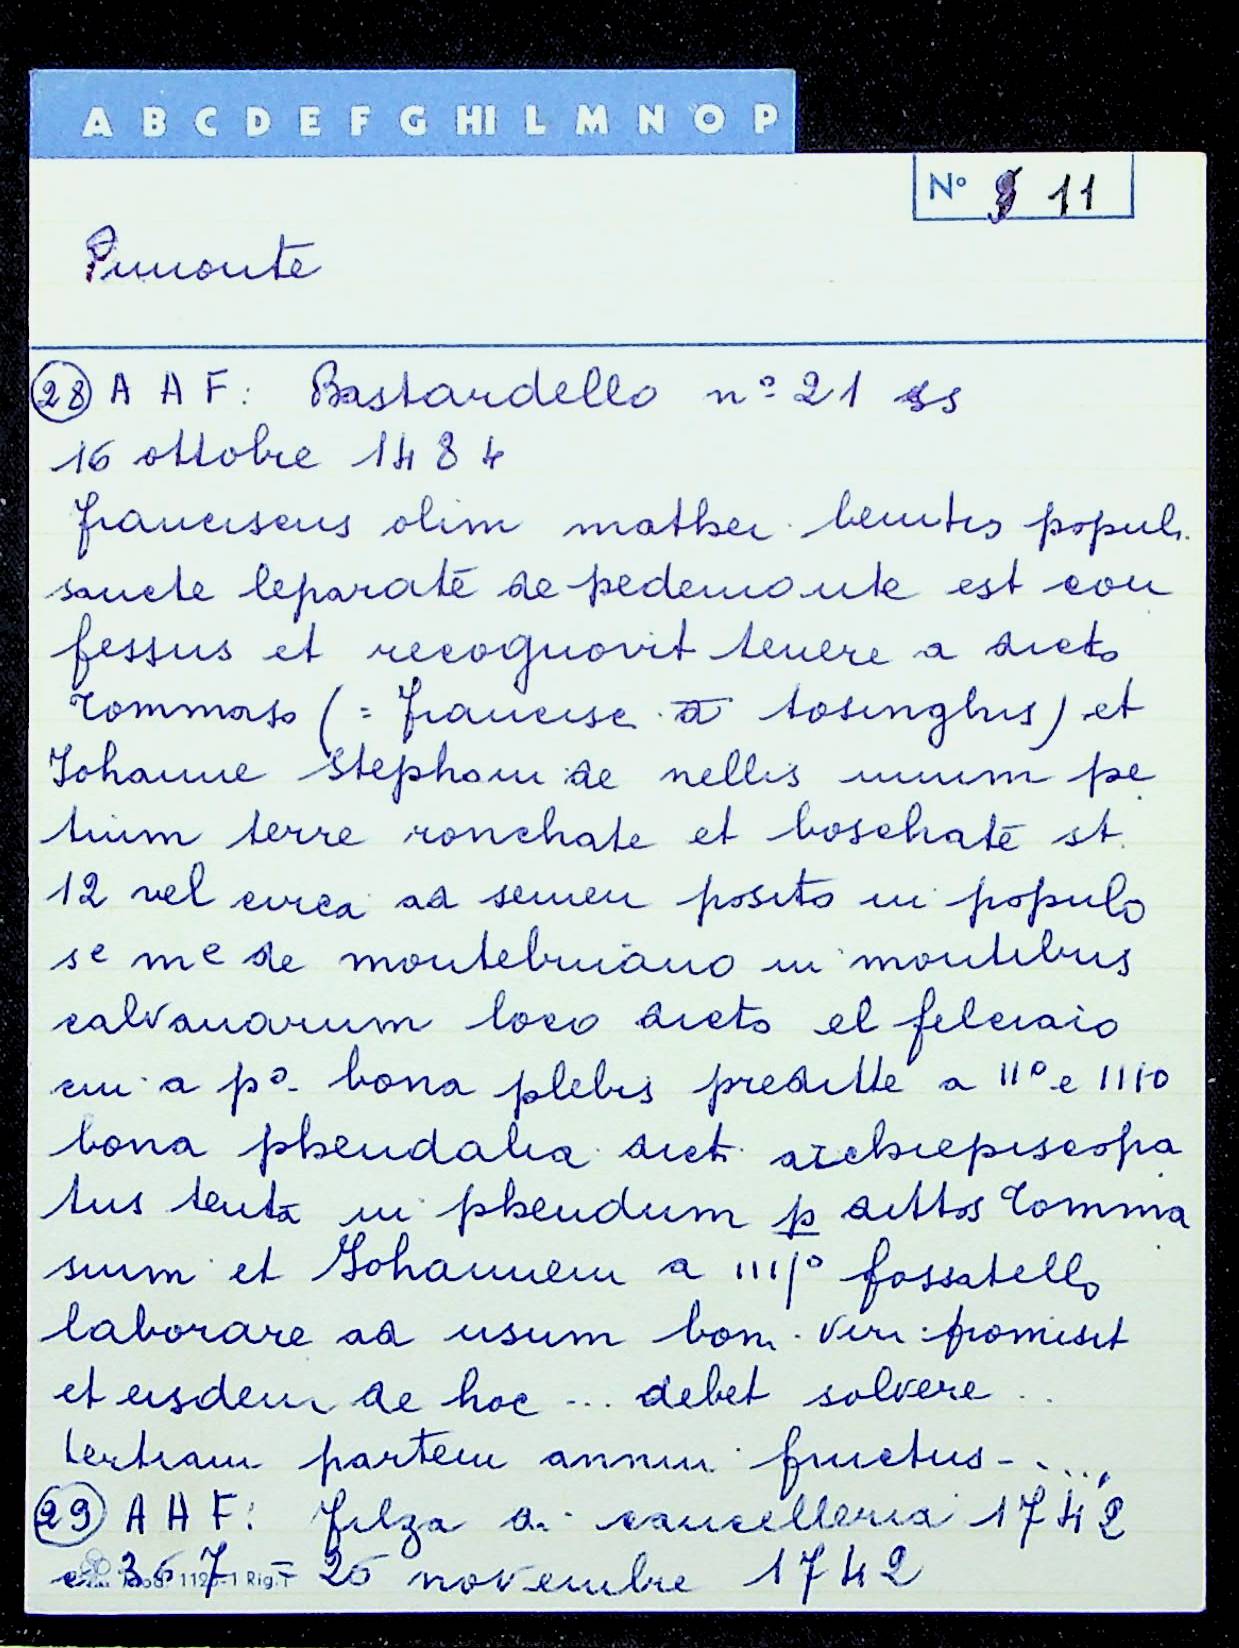 A B C D E F G HI L M N O P
N° 11
Pimonte
28 A A F: Bastardello n° 21 ss
16 ottobre 1484
franciscus olim mathei benitis populi
sancte leparatē de pedemonte est con
fessus et recognovit tenere a dicto
Tommaso (= francisc. a tosinghis) et
Johanne Stephani de nellis unum pe
tium terre ronchate et boschatē st.
12 vel circa ad semen posito in populo
se me de montebuiano in montibus
calvanarum loco dicto el felciaio
cui a po. bona plebis preditte a IIo e IIIo
bona pheudalia dict. archiepiscopa
tus tenta in pheudum p dittos Tomma
sium et Johannem a IIIIo fossatello
laborare ad usum boni viri promisit
et eisdem de hoc ... debet solvere ..
tertiam partem annui fructus - ....
29 A A F: filza di cancelleria 1742
c. 367 = 26 novembre 1742